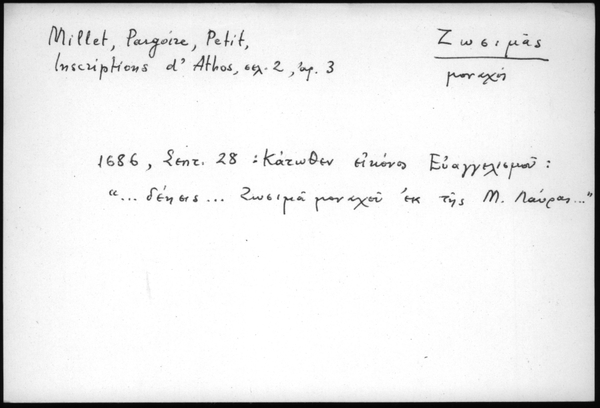 Millet, Pargoire, Petit,
Inscriptions d'Athos, σελ. 2, ἀρ. 3
Ζωσιμᾶς
μοναχός
1686, Σεπτ. 28 : Κάτωθεν εἰκόνος Εὐαγγελισμοῦ :
"... δέησις ... Ζωσιμᾶ μοναχοῦ ἐκ τῆς Μ. Λαύρας..."